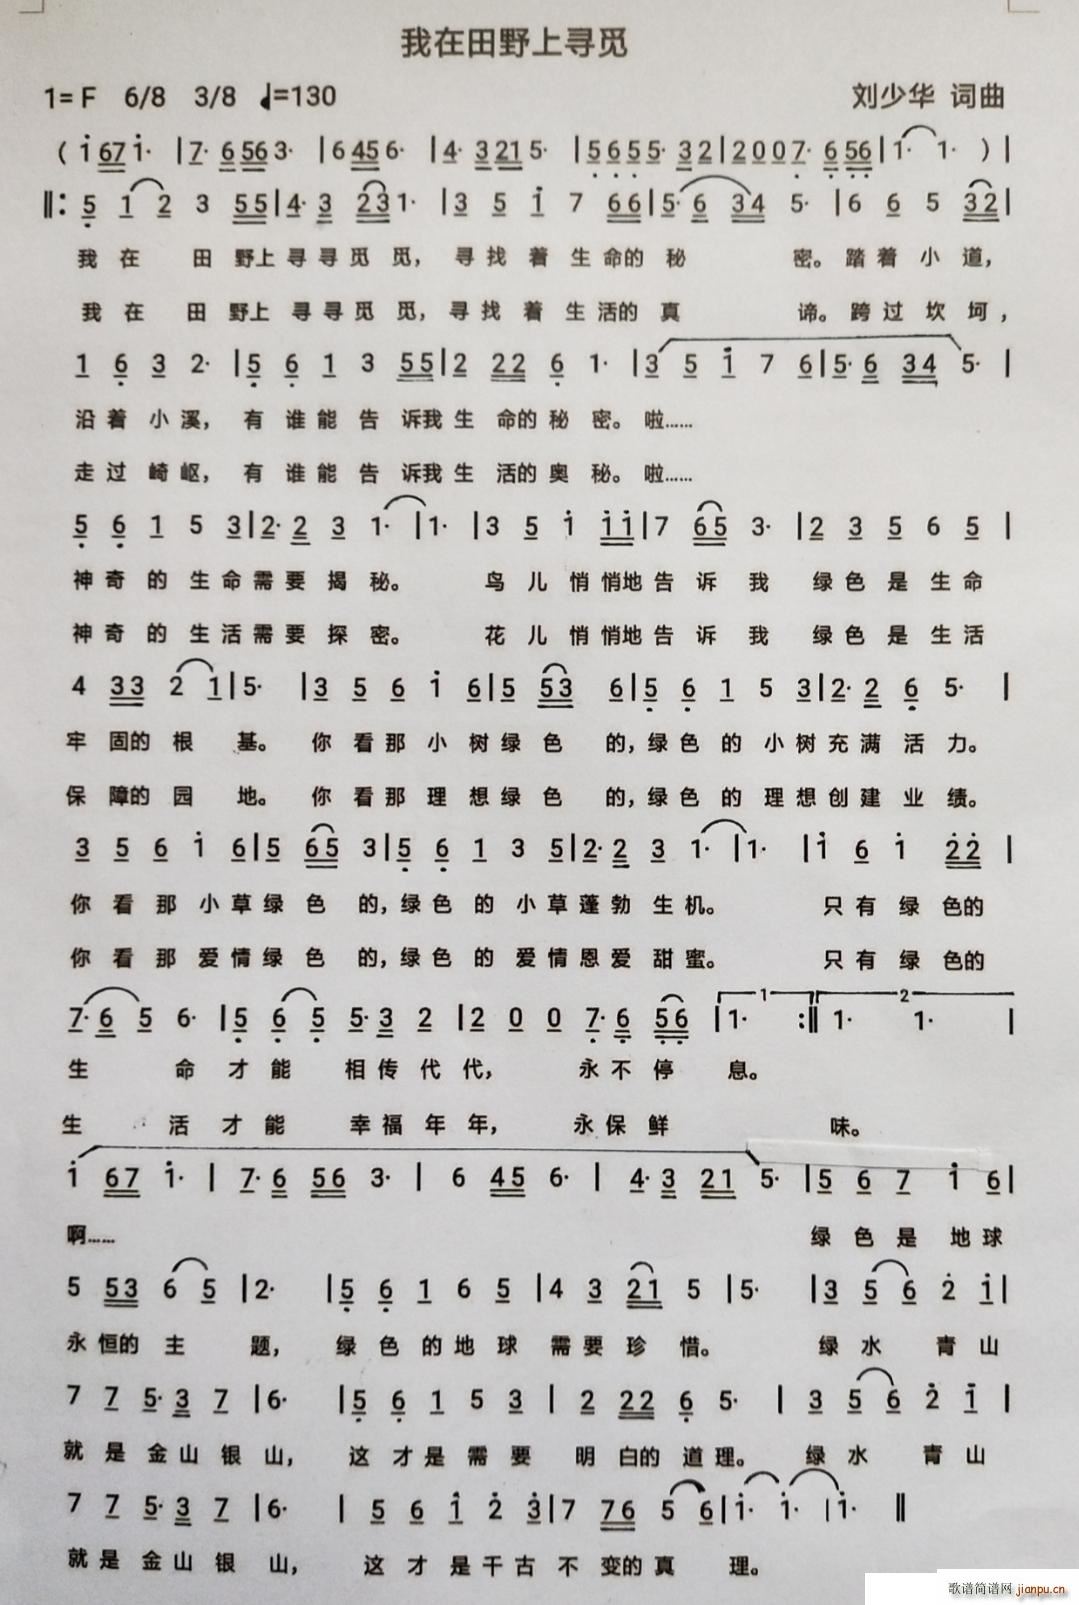 我在田野上寻觅
1=F 6/8 3/8 ♩=130 刘少华 词曲
( i 67 i· | 7· 6 56 3· | 6 45 6· | 4· 3 21 5· | 5 6 5 5· 3 2 | 2 0 0 7· 6 56 | 1· 1· ) |
‖: 5 1 2 3 55 | 4· 3 23 1· | 3 5 i 7 66 | 5· 6 34 5· | 6 6 5 32 |
我在 田 野上寻寻觅 觅，寻找着生命的秘 密。踏着小道，
我在 田 野上寻寻觅 觅，寻找着生活的真 谛。跨过坎坷，
1 6 3 2· | 5 6 1 3 55 | 2 22 6 1· | 3 5 i 7 6 | 5· 6 34 5· |
沿着小溪，有谁能告诉我生命的秘密。啦……
走过崎岖，有谁能告诉我生活的奥秘。啦……
5 6 1 5 3 | 2· 2 3 1· | 1· | 3 5 i i i | 7 65 3· | 2 3 5 6 5 |
神奇的生命需要揭秘。 鸟儿悄悄地告诉我 绿色是生命
神奇的生活需要探密。 花儿悄悄地告诉我 绿色是生活
4 33 2 1 | 5· | 3 5 6 i 6 | 5 53 6 | 5 6 1 5 3 | 2· 2 6 5· |
牢固的根 基。你看那小树绿色 的，绿色的小树充满活力。
保障的园 地。你看那理想绿色 的，绿色的理想创建业绩。
3 5 6 i 6 | 5 65 3 | 5 6 1 3 5 | 2· 2 3 1· | 1· | i 6 i 22 |
你看那小草绿色 的，绿色的小草蓬勃生机。 只有绿色的
你看那爱情绿色 的，绿色的爱情恩爱甜蜜。 只有绿色的
7· 6 5 6· | 5 6 5 5· 3 2 | 2 0 0 7· 6 56 | 1 1· :‖ 2 1· 1· |
生 命才能 相传代代， 永不停 息。
生 活才能 幸福年年， 永保鲜 味。
i 67 i· | 7· 6 56 3· | 6 45 6· | 4· 3 21 5· | 5 6 7 i 6 |
啊…… 绿色是地球
5 53 6 5 | 2· | 5 6 1 6 5 | 4 3 21 5 | 5· | 3 5 6 2 i |
永恒的主 题，绿色的地球需要珍惜。 绿水 青山
7 7 5· 3 7 | 6· | 5 6 1 5 3 | 2 22 6 5· | 3 5 6 2 i |
就是金山银山，这才是需要明白的道理。绿水 青山
7 7 5· 3 7 | 6· | 5 6 i 2 3 | 7 76 5 6 | i· i· | i· ‖
就是金山银山， 这才是千古不变的真 理。
歌谱简谱网 jianpu.cn